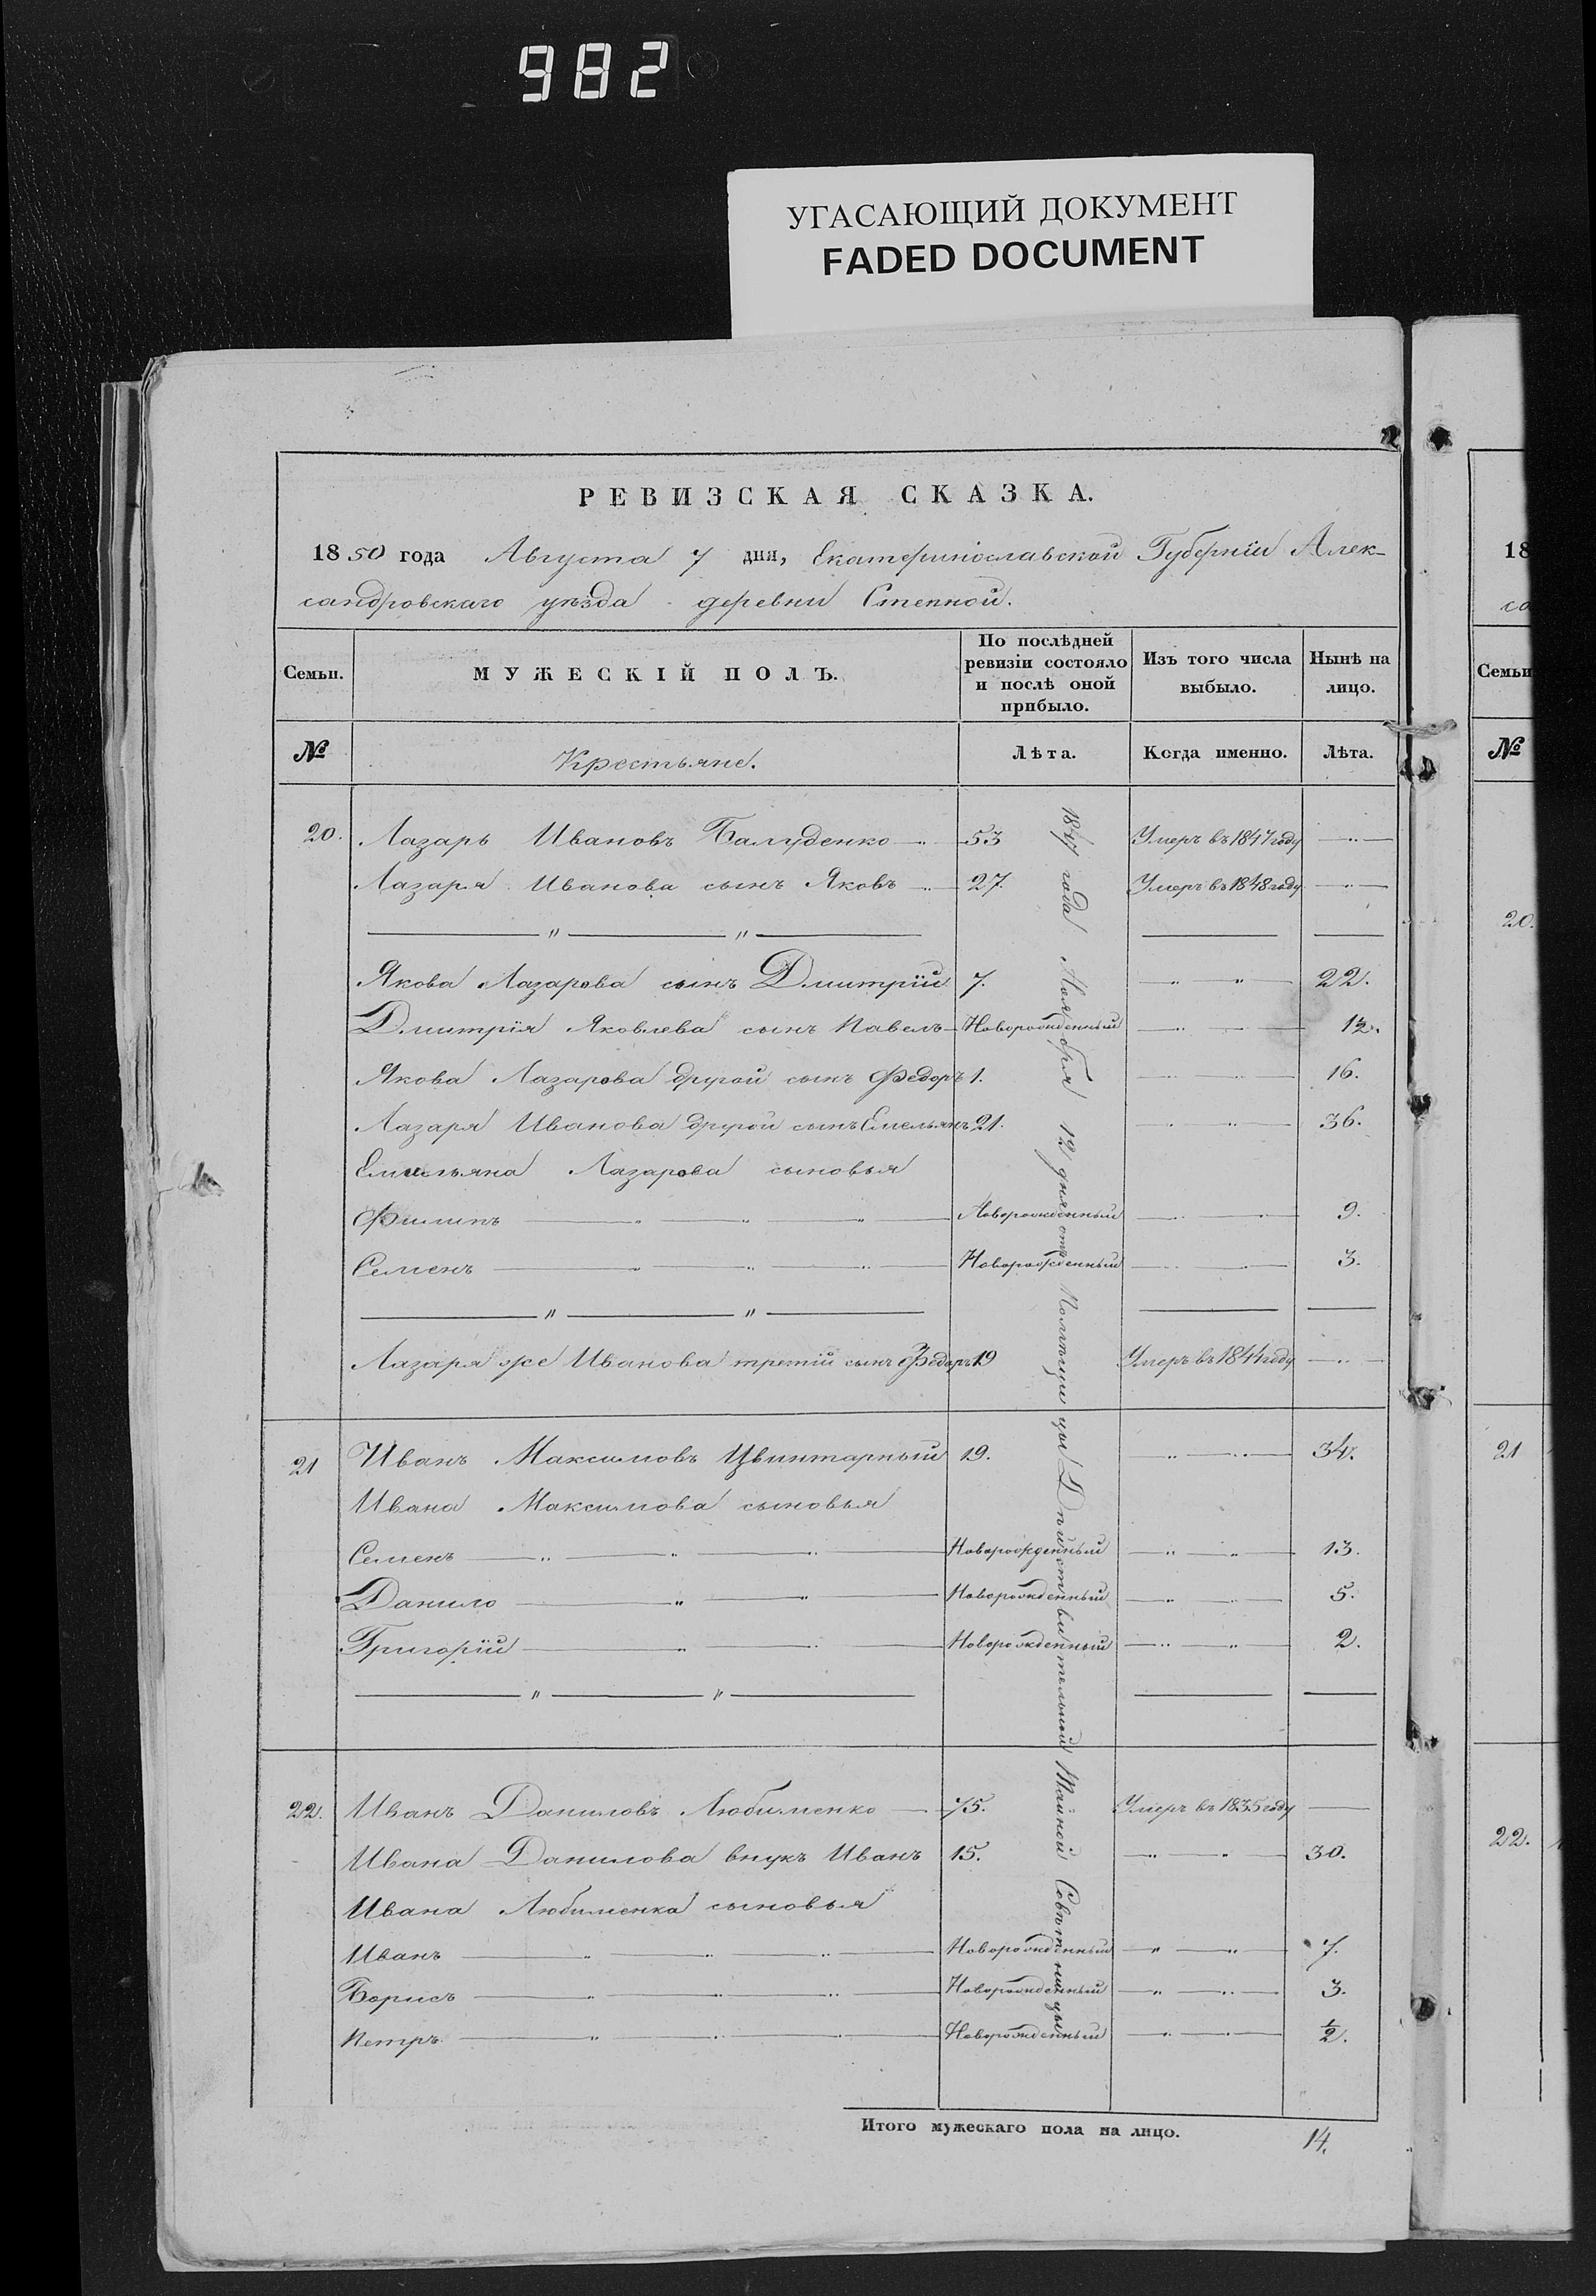 982
УГАСАЮЩИЙ ДОКУМЕНТ
FADED DOCUMENT
РЕВИЗСКАЯ СКАЗКА.
1850 года Августа 7 дня, Екатеринославской Губернїи Алек-
сандровскаго уѣзда деревни Степной.
Семьи.
МУЖЕСКІЙ ПОЛЪ.
По послѣдней ревизіи состояло и послѣ оной прибыло.
Изъ того числа выбыло.
Нынѣ на лицо.
№
Крестьяне.
Лѣта.
Когда именно.
Лѣта.
20. Лазарь Ивановъ Балуденко 53 Умеръ въ 1847 году
Лазаря Иванова сынъ Яковъ 27. Умеръ въ 1848 году
Якова Лазарева сынъ Дмитрїй 7. 22.
Дмитрїя Яковлева сынъ Павелъ Новорожденный 12.
Якова Лазарева другой сынъ Федоръ 1. 16.
Лазаря Иванова другой сынъ Емельянъ 21. 36.
Емельяна Лазарева сыновья
Филипъ Новорожденный 9.
Семенъ Новорожденный 3.
Лазаря же Иванова третій сынъ Федоръ 19 Умеръ въ 1844 году
21 Иванъ Максимовъ Цвинтарный 19. 34.
Ивана Максимова сыновья
Семенъ Новорожденный 13.
Данило Новорожденный 5.
Григорїй Новорожденный 2.
22. Иванъ Даниловъ Любименко 75. Умеръ въ 1835 году
Ивана Данилова внукъ Иванъ 15. 30.
Ивана Любименка сыновья
Иванъ Новорожденный 7.
Борисъ Новорожденный 3.
Петръ Новорожденный 1/2.
года Ноября 12 дня отъ Помѣщицы Дѣйствительной Тайной Совѣтницы
Итого мужескаго пола на лицо. 14.
18
са
Семьи
№
20.
21
22.